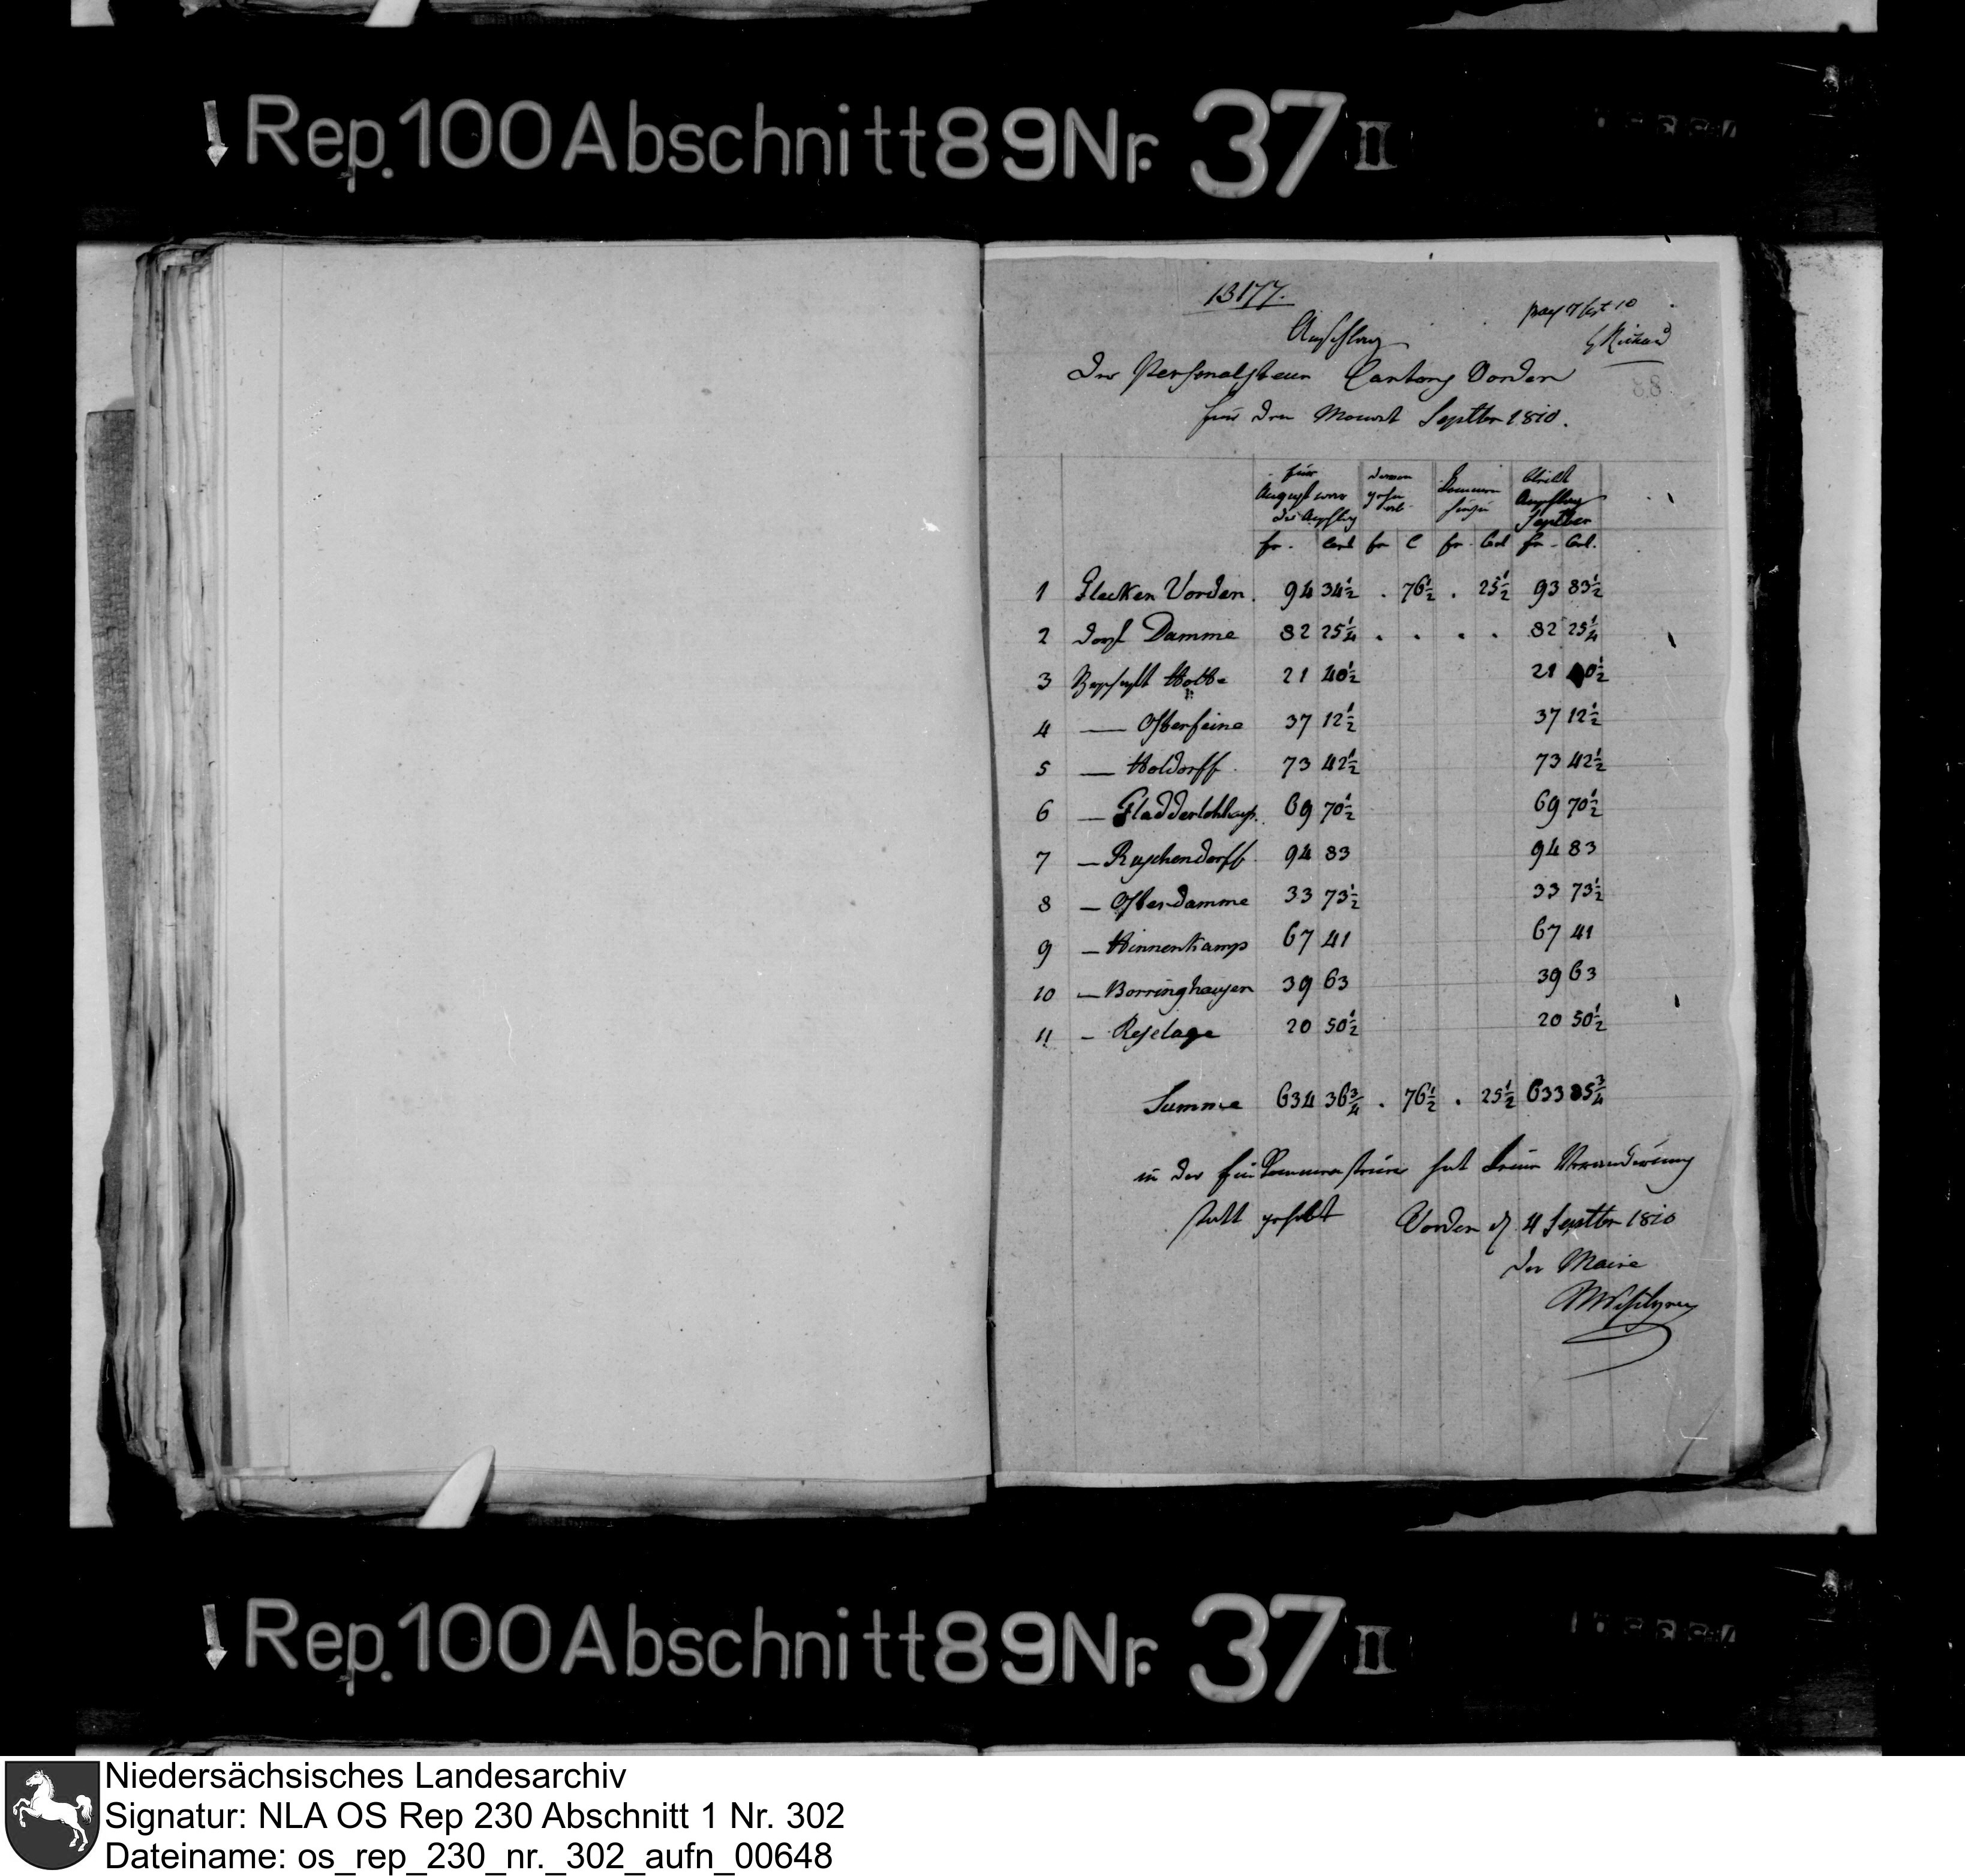 Rep. 100 Abschnitt 89 Nr. 37 II
13177.
Anschlag
der Personalsteuer Cantons Vorden
für den Monat Septbr 1810.
für August war der Anschlag | davon gehen ab | kommen hinzu | bleibt Anschlag Septber
fr. Cent | fr C | fr. Cent | fr. Cent.
1 Flecken Vorden. 94 34½ . 76½ . 25½ 93 83½
2 dorf Damme 82 25¼ . . . . 82 25¼
3 Baurschaft Holte 21 40½ 21 40½
4 — Osterfeine 37 12½ 37 12½
5 — Holdorff. 73 42½ 73 42½
6 — Fladderlohhausen. 69 70½ 69 70½
7 — Ruschendorff 94 83 94 83
8 — Osterdamme 33 73½ 33 73½
9 — Hinnenkamp 67 41 67 41
10 — Borringhausen 39 63 39 63
11 — Reselage 20 50½ 20 50½
Summe 634 36¾ . 76½ . 25½ 633 85¾
in der hat keine Veränderung
statt gehabt Vorden d. 4 Septbr 1810
der Maire
Rep. 100 Abschnitt 89 Nr. 37 II
Niedersächsisches Landesarchiv
Signatur: NLA OS Rep 230 Abschnitt 1 Nr. 302
Dateiname: os_rep_230_nr._302_aufn_00648